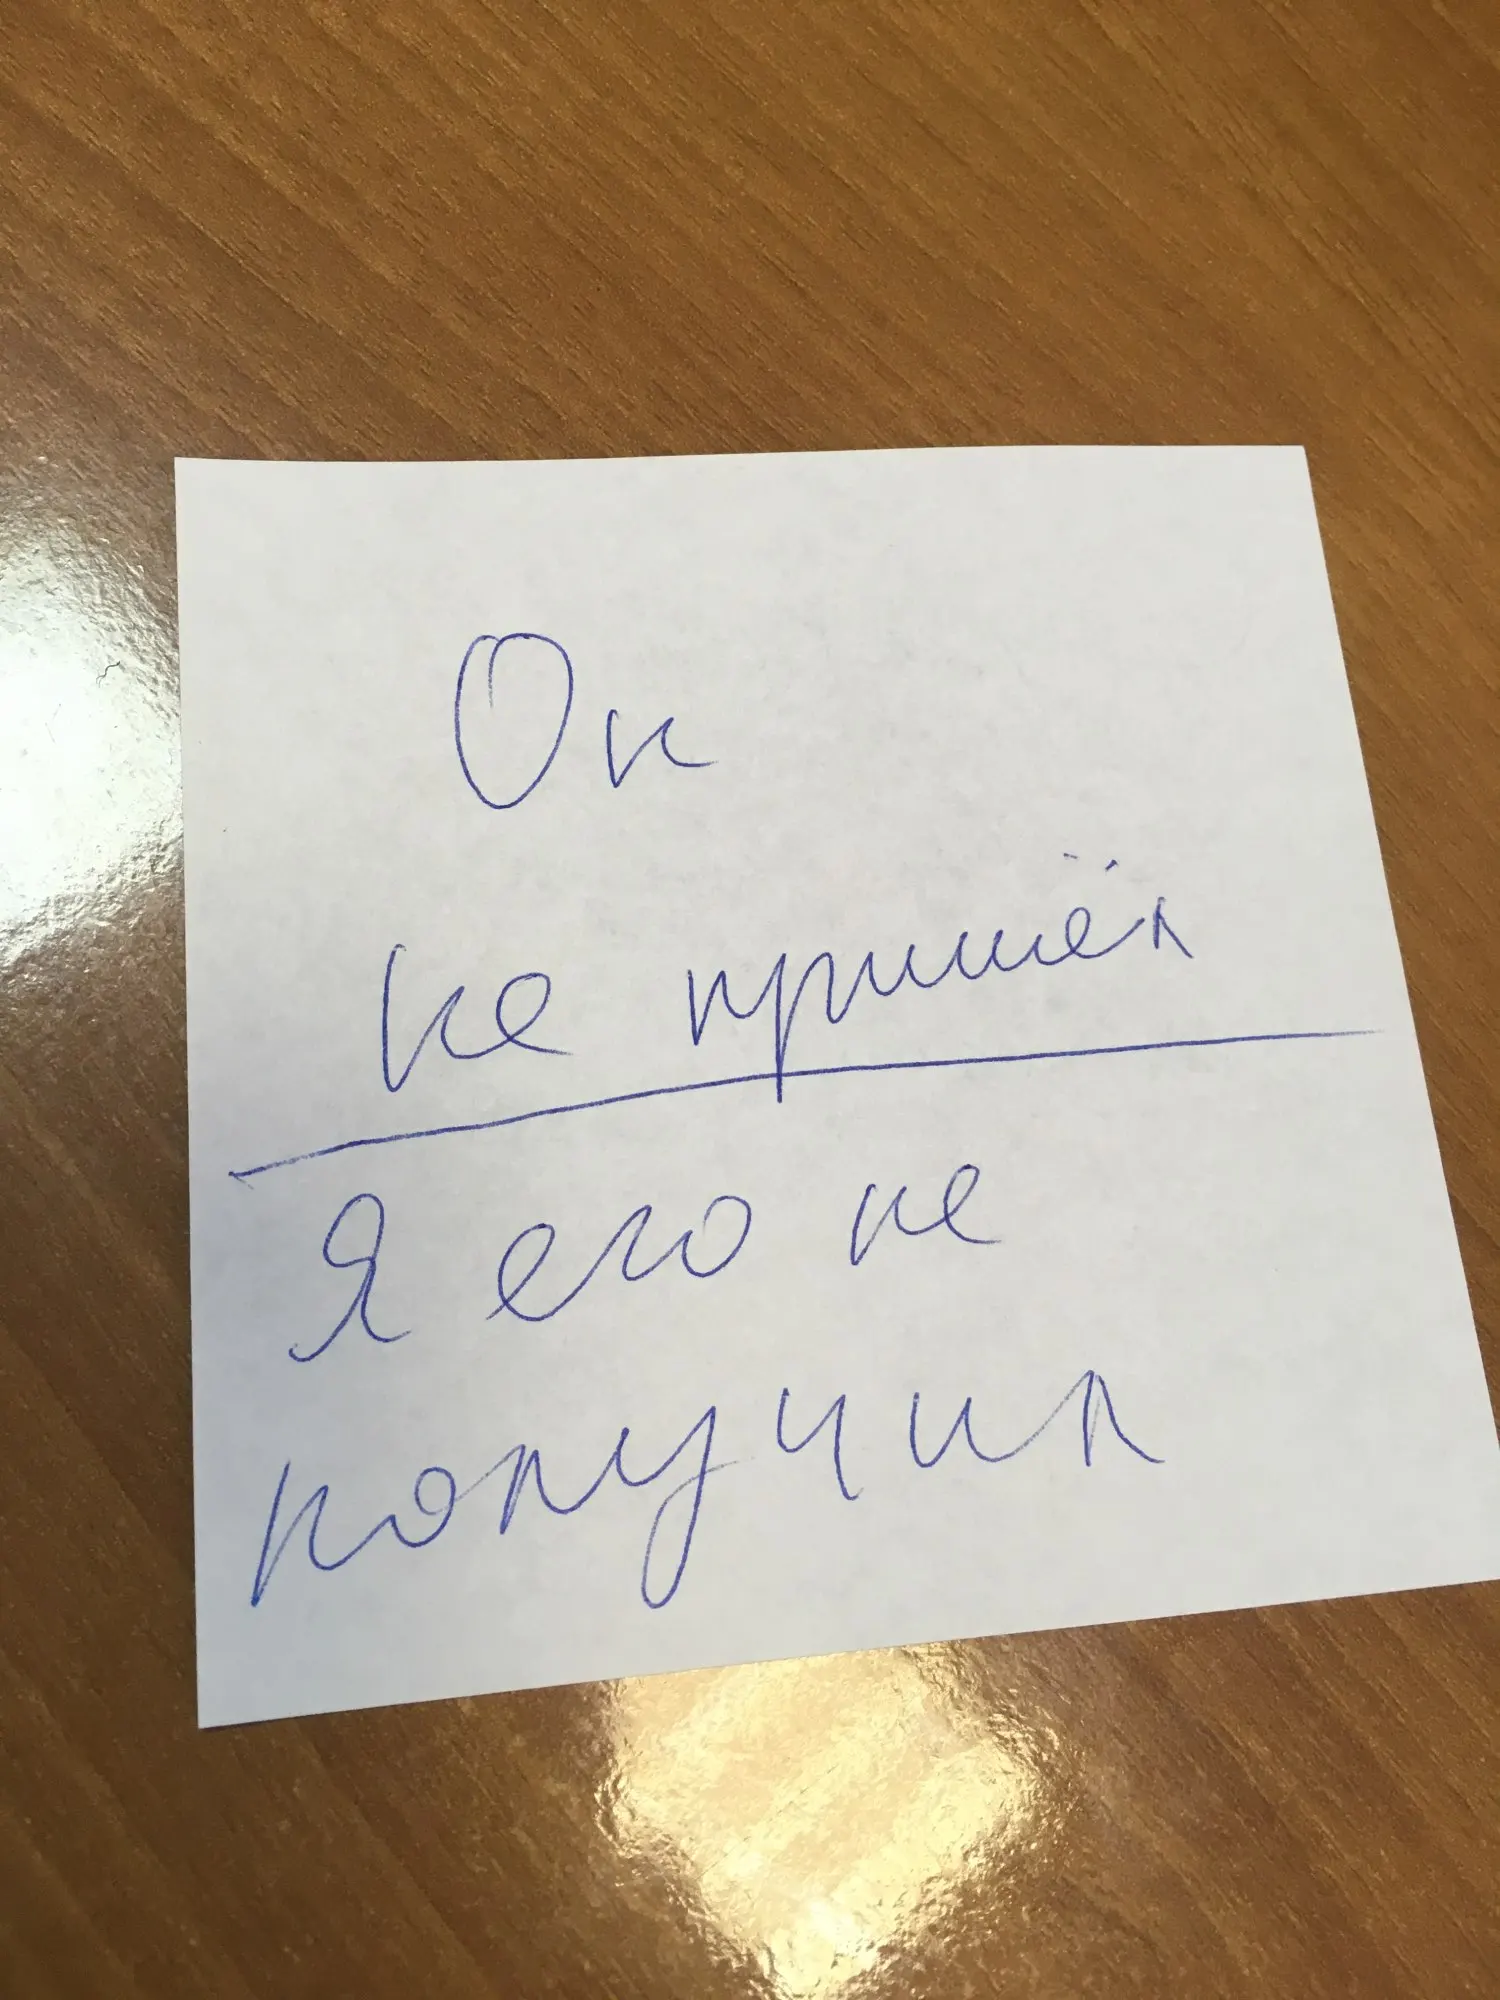 Он
не пришёл
Я его не
получил